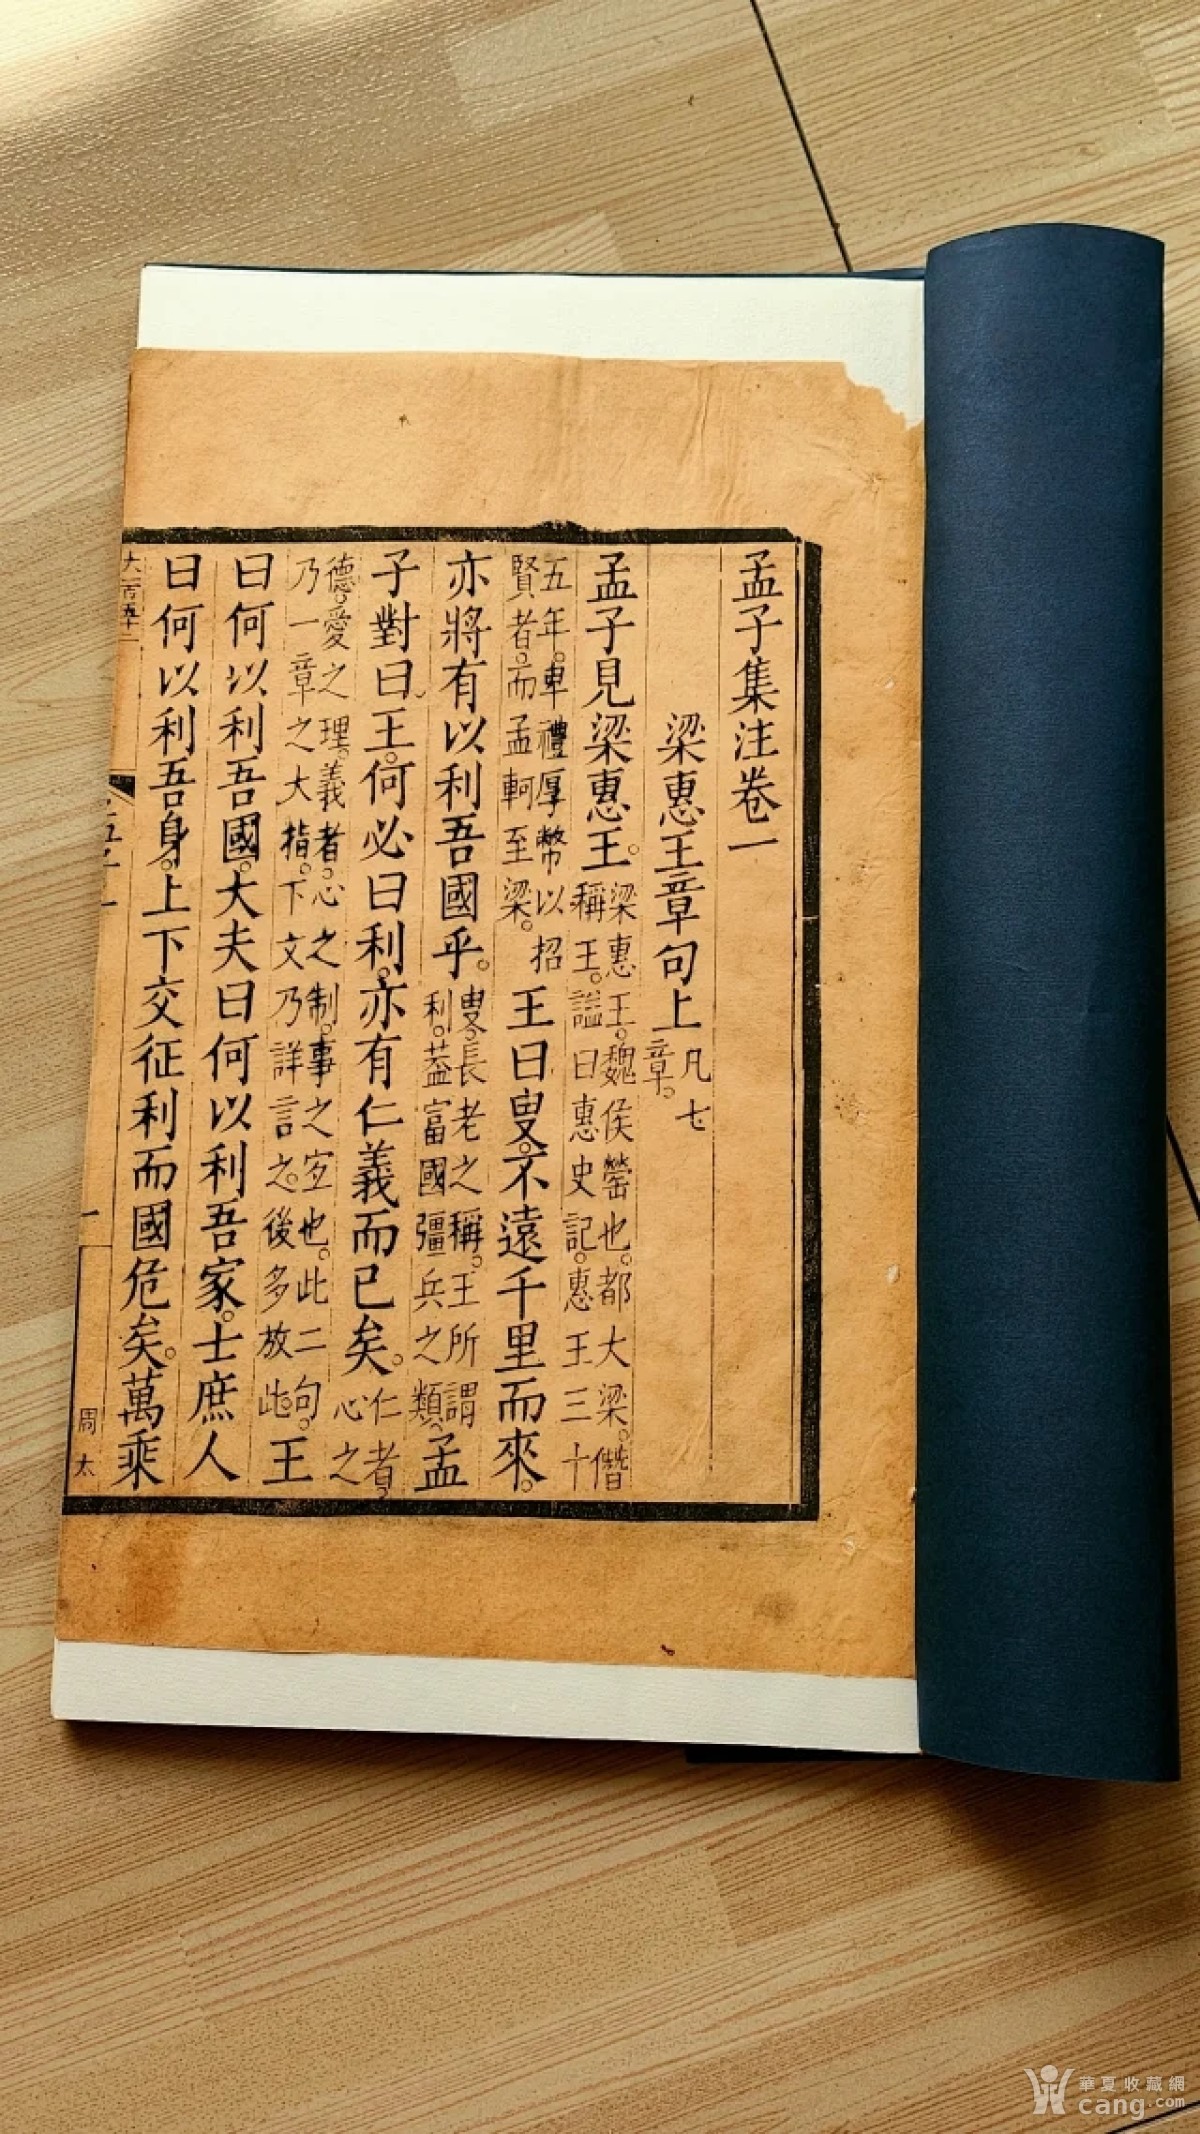 孟子集注卷一
梁惠王章句上凡七章。
孟子見梁惠王。梁惠王。魏侯罃也。都大梁。僭稱王。諡曰惠史記。惠王三十
五年。卑禮厚幣以招賢者。而孟軻至梁。王曰叟。不遠千里而來。
亦將有以利吾國乎。叟。長老之稱。王所謂利。葢富國彊兵之類。孟
子對曰王。何必曰利。亦有仁義而已矣。仁者。心之
德。愛之理。義者。心之制。事之宐也。此二句。乃一章之大指。下文乃詳言之。後多放此。王
曰何以利吾國。大夫曰何以利吾家。士庶人
曰何以利吾身。上下交征利而國危矣。萬乘
一
周太
華夏收藏網
cang.com